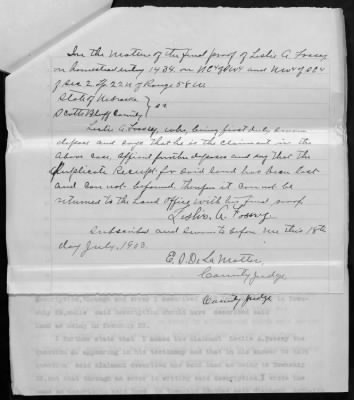 In the Matter of the final proof of Leslie A Fossey
on homestead entry 1434. on NE4 of SW4 and NW4 of SE4
of Sec 2 Tp 22 N of Range 58 W
State of Nebraska
Scotts Bluff County } ss
Leslie A Fossey, who, being first duly sworn
deposes and says that he is the claimant in the
above case, affiant further deposes and say that the
Duplicate Receipt for said land has been lost
and can not be found therefore it can not be
returned to the Land Office with his final proof
Leslie. A. Fossey
Subscribed and sworn to before me this 18th
day July. 1903.
E. O. De La Matter
County Judge
County Judge
I further state that I asked the claimant Leslie A.Fossey the
question as appearing in his testimony and that in his answer to said
question said claimant described said land as being in Township
22, but that through an error in writing said description I wrote the